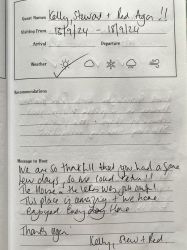 Guest Names Kelly, Stewart + Red Again !!
Visiting From 15/9/24 - 18/9/24
Arrival Departure
Weather
Recommendations
Message to Host
We are so thankful that you had a some
few days so we could return !!
The House + the views was
This place is amazing + we have
Enjoyed Everything Here
Thanks Again
Kelly, Stew + Red